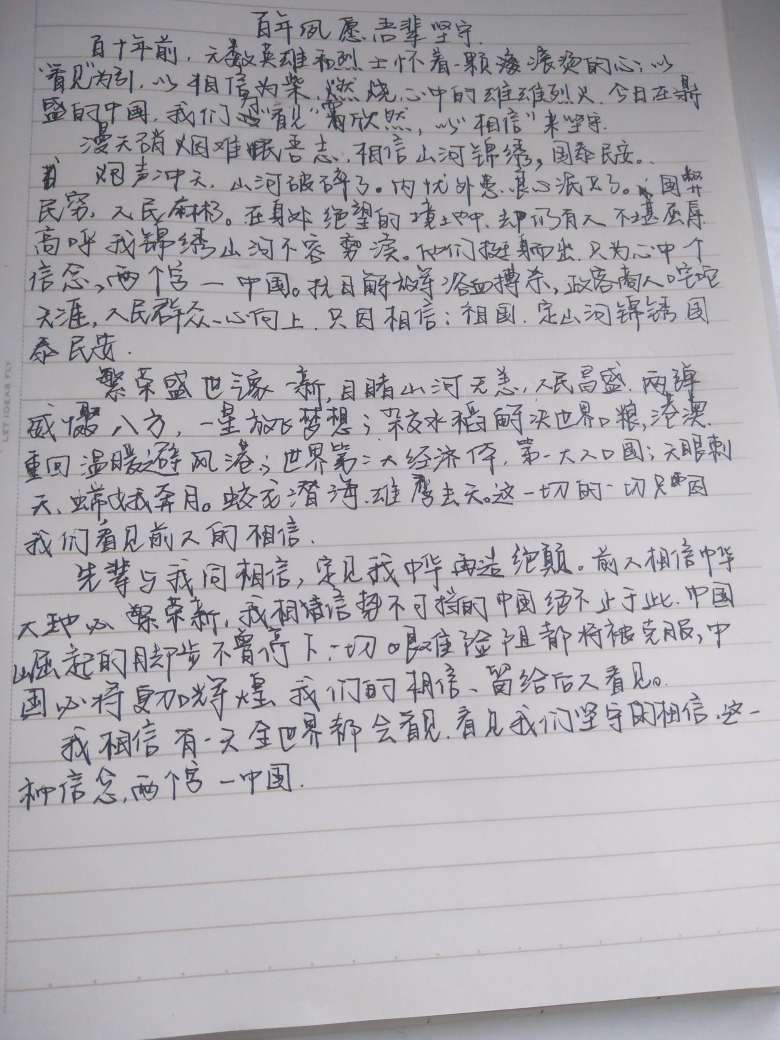 百年夙愿吾辈坚守.
百十年前,无数英雄和烈士怀着一颗滚滚烫的心;以
“看见”为引,以相信为柴,燃烧心中的雄雄烈火.今日在鼎
盛的中国,我们“看见”欣然,以“相信”来坚守.
漫天硝烟难眠吾志,相信山河锦绣,国泰民安.
炮声冲天,山河破碎了。内忧外患,良心泯灭了。国弊
民穷,人民麻木。在身处绝望的境地中,却仍有人不堪屈辱
高呼我锦绣山河不容侵。他们挺身而出,只为心中个
信念,两个字—中国。抗日解放军浴血搏杀,政客商人
天涯,人民群众一心向上,只因相信:祖国,定山河锦锈国
泰民安.
繁荣盛世家一新,目睹山河无恙,人民昌盛.两弹
威慑八方,一星放飞梦想;杂交水稻解决世界口粮,港澳
重回温暖避风港;世界第二大经济体,第一大人口国;天眼刺
天,嫦娥奔月。蛟龙潜海,雄鹰去天。这一切的一切只因
我们看见前人的相信.
先辈与我同相信,定见我中华再造绝颠。前人相信中华
大地必繁荣新,我相信势不可挡的中国绝不止于此.中国
崛起的脚步不曾停下,一切艰难险阻都将被克服,中
国必将更加辉煌,我们的相信、留给后人看见。
我相信有一天全世界都会看见,看见我们坚守的相信,这一
种信念,两个字一中国.
LET IDEAS FLY